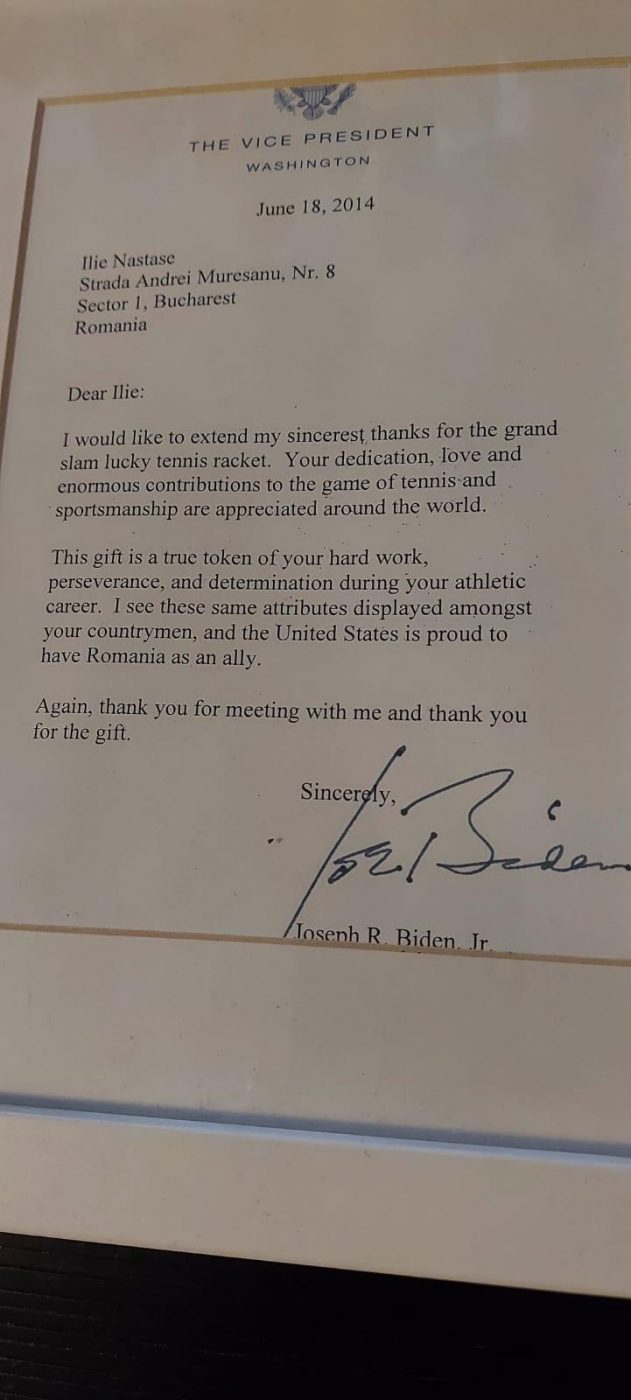 THE VICE PRESIDENT
WASHINGTON
June 18, 2014
Ilie Nastase
Strada Andrei Muresanu, Nr. 8
Sector 1, Bucharest
Romania
Dear Ilie:
I would like to extend my sincerest thanks for the grand
slam lucky tennis racket. Your dedication, love and
enormous contributions to the game of tennis and
sportsmanship are appreciated around the world.
This gift is a true token of your hard work,
perseverance, and determination during your athletic
career. I see these same attributes displayed amongst
your countrymen, and the United States is proud to
have Romania as an ally.
Again, thank you for meeting with me and thank you
for the gift.
Sincerely,
Joe Biden
Joseph R. Biden, Jr.